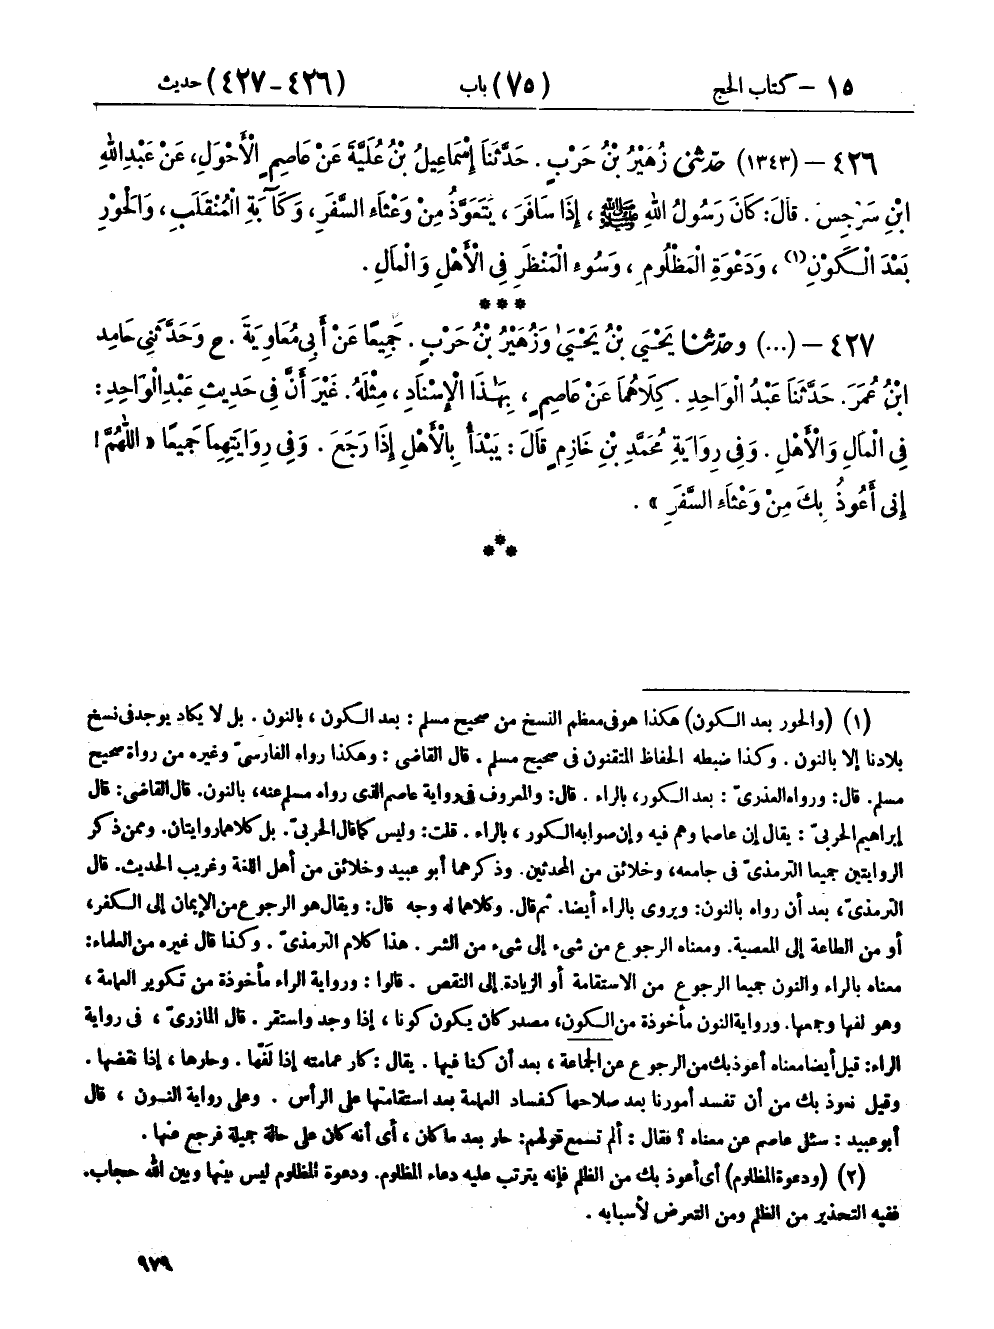 ١٥ – كتاب الحج (٧٥) باب (٤٢٦-٤٢٧) حديث
٤٢٦ – (١٣٤٣) حَدَّثَنِي زُهَيْرُ بْنُ حَرْبٍ . حَدَّثَنَا إِسْمَاعِيلُ بْنُ عُلَيَّةَ عَنْ عَاصِمٍ الْأَحْوَلِ، عَنْ عَبْدِ اللهِ
ابْنِ سَرْجِسَ . قَالَ: كَانَ رَسُولُ اللهِ ﷺ ، إِذَا سَافَرَ ، يَتَعَوَّذُ مِنْ وَعْثَاءِ السَّفَرِ، وَكَآبَةِ الْمُنْقَلَبِ، وَالْحَوْرِ
بَعْدَ الْكَوْنِ(١) ، وَدَعْوَةِ الْمَظْلُومِ ، وَسُوءِ الْمَنْظَرِ فِي الْأَهْلِ وَالْمَالِ .
***
٤٢٧ – (...) وحَدَّثَنَا يَحْيَى بْنُ يَحْيَىٰ وَزُهَيْرُ بْنُ حَرْبٍ . جَمِيعًا عَنْ أَبِي مُعَاوِيَةَ . ح وَحَدَّثَنِي حَامِدُ
ابْنُ عُمَرَ. حَدَّثَنَا عَبْدُ الْوَاحِدِ . كِلَاهُمَا عَنْ عَاصِمٍ ، بِهَٰذَا الْإِسْنَادِ ، مِثْلَهُ. غَيْرَ أَنَّ فِي حَدِيثِ عَبْدِ الْوَاحِدِ :
فِي الْمَالِ وَالْأَهْلِ . وَفِي رِوَايَةِ مُحَمَّدِ بْنِ خَازِمٍ قَالَ : يَبْدَأُ بِالْأَهْلِ إِذَا رَجَعَ . وَفِي رِوَايَتِهِمَا جَمِيعًا « اللّٰهُمَّ !
إِنِّي أَعُوذُ بِكَ مِنْ وَعْثَاءِ السَّفَرِ » .
***
(١) (والحور بعد الكون) هكذا هو فى معظم النسخ من صحيح مسلم : بعد الكون ، بالنون . بل لا يكاد يوجد فى نسخ
بلادنا إلا بالنون . وكذا ضبطه الحفاظ المتقنون فى صحيح مسلم . قال القاضى : وهكذا رواه الفارسىّ وغيره من رواة صحيح
مسلم. قال: ورواه العذرىّ : بعد الكور، بالراء . قال: والمعروف فى رواية عاصم الذى رواه مسلم عنه، بالنون. قال القاضى: قال
إبراهيم الحربىّ : يقال إن عاصما وهم فيه وإن صوابه الكور ، بالراء . قلت: وليس كما قال الحربىّ. بل كلاهما روايتان. وممن ذكر
الروايتين جميعا الترمذىّ فى جامعه، وخلائق من المحدثين. وذكرهما أبو عبيد وخلائق من أهل اللغة وغريب الحديث. قال
الترمذىّ، بعد أن رواه بالنون: ويروى بالراء أيضا. ثم قال. وكلاهما له وجه قال: ويقال هو الرجوع من الإيمان إلى الكفر،
أو من الطاعة إلى المعصية. ومعناه الرجوع من شىء إلى شىء من الشر . هذا كلام الترمذىّ . وكذا قال غيره من العلماء:
معناه بالراء والنون جميعا الرجوع من الاستقامة أو الزيادة إلى النقص . قالوا : ورواية الراء مأخوذة من تكوير العمامة ،
وهو لفها وجمعها. ورواية النون مأخوذة من الكون، مصدر كان يكون كونا ، إذا وجد واستقر . قال المازرىّ ، فى رواية
الراء: قيل أيضا معناه أعوذ بك من الرجوع عن الجماعة ، بعد أن كنا فيها . يقال : كار عمامته إذا لفّها . وحارها ، إذا نقضها .
وقيل نعوذ بك من أن تفسد أمورنا بعد صلاحها كفساد العمامة بعد استقامتها على الرأس . وعلى رواية النون ، قال
أبو عبيد : سئل عاصم عن معناه ؟ فقال : ألم تسمع قولهم: حار بعد ما كان ، أى أنه كان على حالة جميلة فرجع عنها .
(٢) (ودعوة المظلوم) أى أعوذ بك من الظلم فإنه يترتب عليه دعاء المظلوم. ودعوة المظلوم ليس بينها وبين الله حجاب.
ففيه التحذير من الظلم ومن التعرض لأسبابه .
٩٧٩